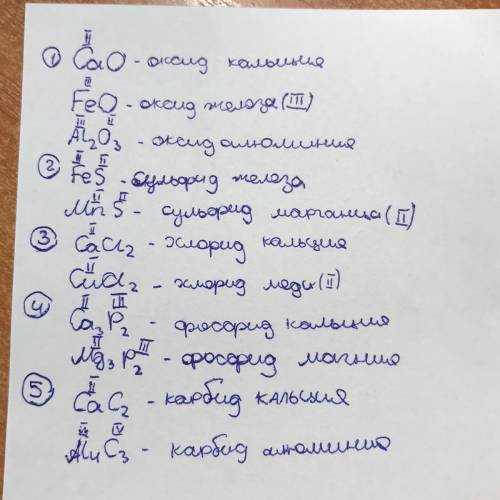 ① CaO - оксид кальция
FeO - оксид железа (III)
Al2O3 - оксид алюминия
② FeS - сульфид железа
MnS - сульфид марганца (II)
③ CaCl2 - хлорид кальция
CuCl2 - хлорид меди (II)
④ Ca3P2 - фосфид кальция
Mg3P2 - фосфид магния
⑤ CaC2 - карбид кальция
Al4C3 - карбид алюминия